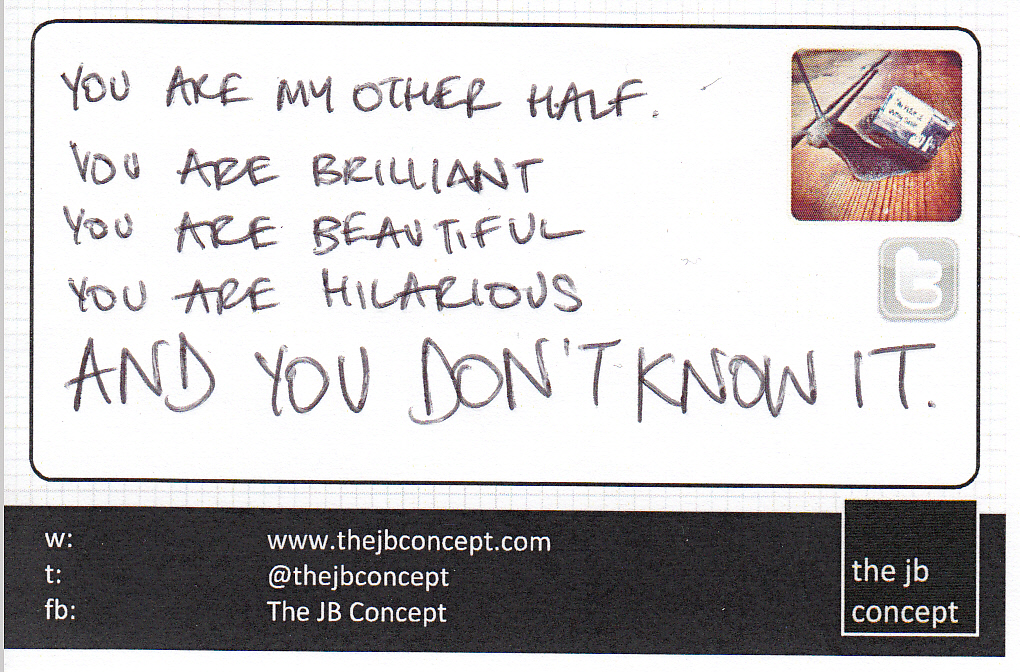 YOU ARE MY OTHER HALF.
YOU ARE BRILLIANT
YOU ARE BEAUTIFUL
YOU ARE HILARIOUS
AND YOU DON'T KNOW IT.
w: www.thejbconcept.com
t: @thejbconcept
fb: The JB Concept
the jb
concept